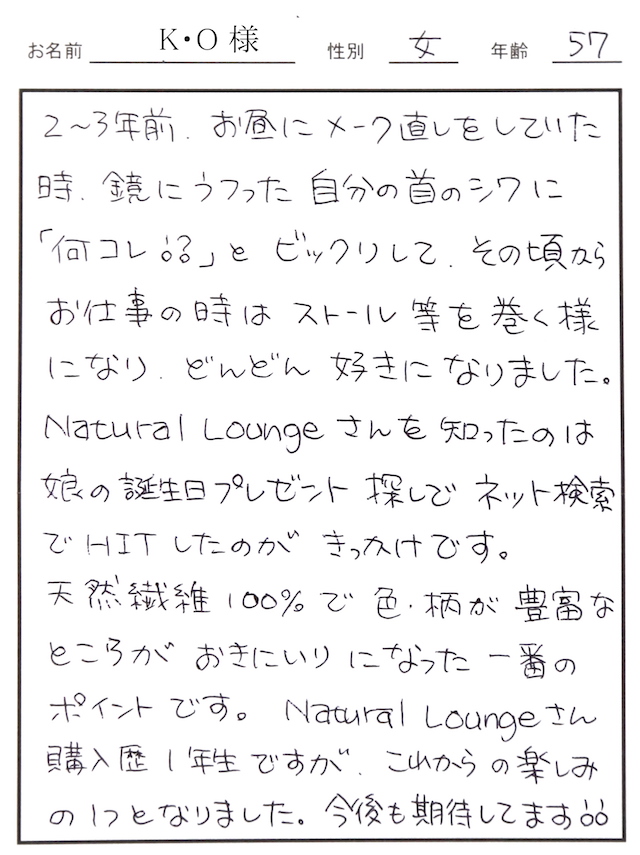 お名前 K・O様 性別 女 年齢 57
2〜3年前、お昼にメーク直しをしていた
時、鏡にうつった自分の首のシワに
「何コレ!?」とビックリして、その頃から
お仕事の時はストール等を巻く様
になり、どんどん好きになりました。
Natural Loungeさんを知ったのは
娘の誕生日プレゼント探しでネット検索
でHITしたのがきっかけです。
天然繊維100%で色・柄が豊富な
ところがおきにいりになった一番の
ポイントです。Natural Loungeさん
購入歴1年生ですが、これからの楽しみ
の1つとなりました。今後も期待してます!!